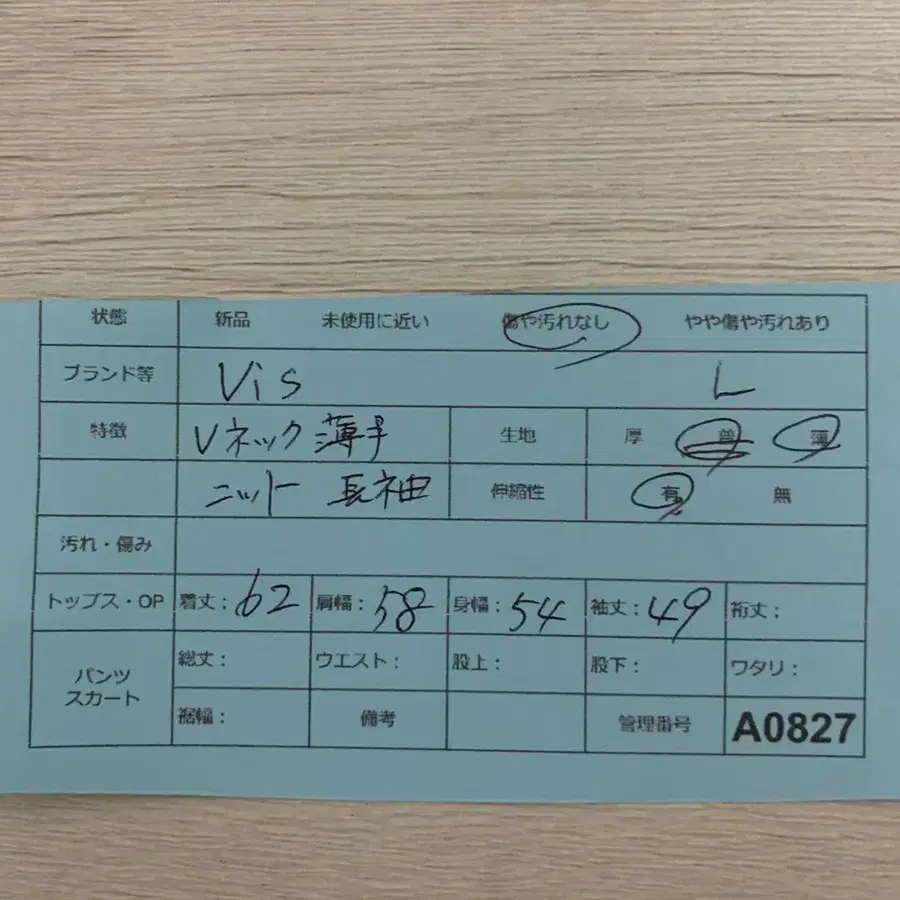 状態 新品 未使用に近い 傷や汚れなし やや傷や汚れあり
ブランド等 Vis L
特徴 Vネック 薄手 生地 厚 普 薄
ニット 長袖 伸縮性 有 無
汚れ・傷み
トップス・OP 着丈：62 肩幅：58 身幅：54 袖丈：49 裄丈：
パンツ スカート 総丈： ウエスト： 股上： 股下： ワタリ：
裾幅： 備考 管理番号 A0827